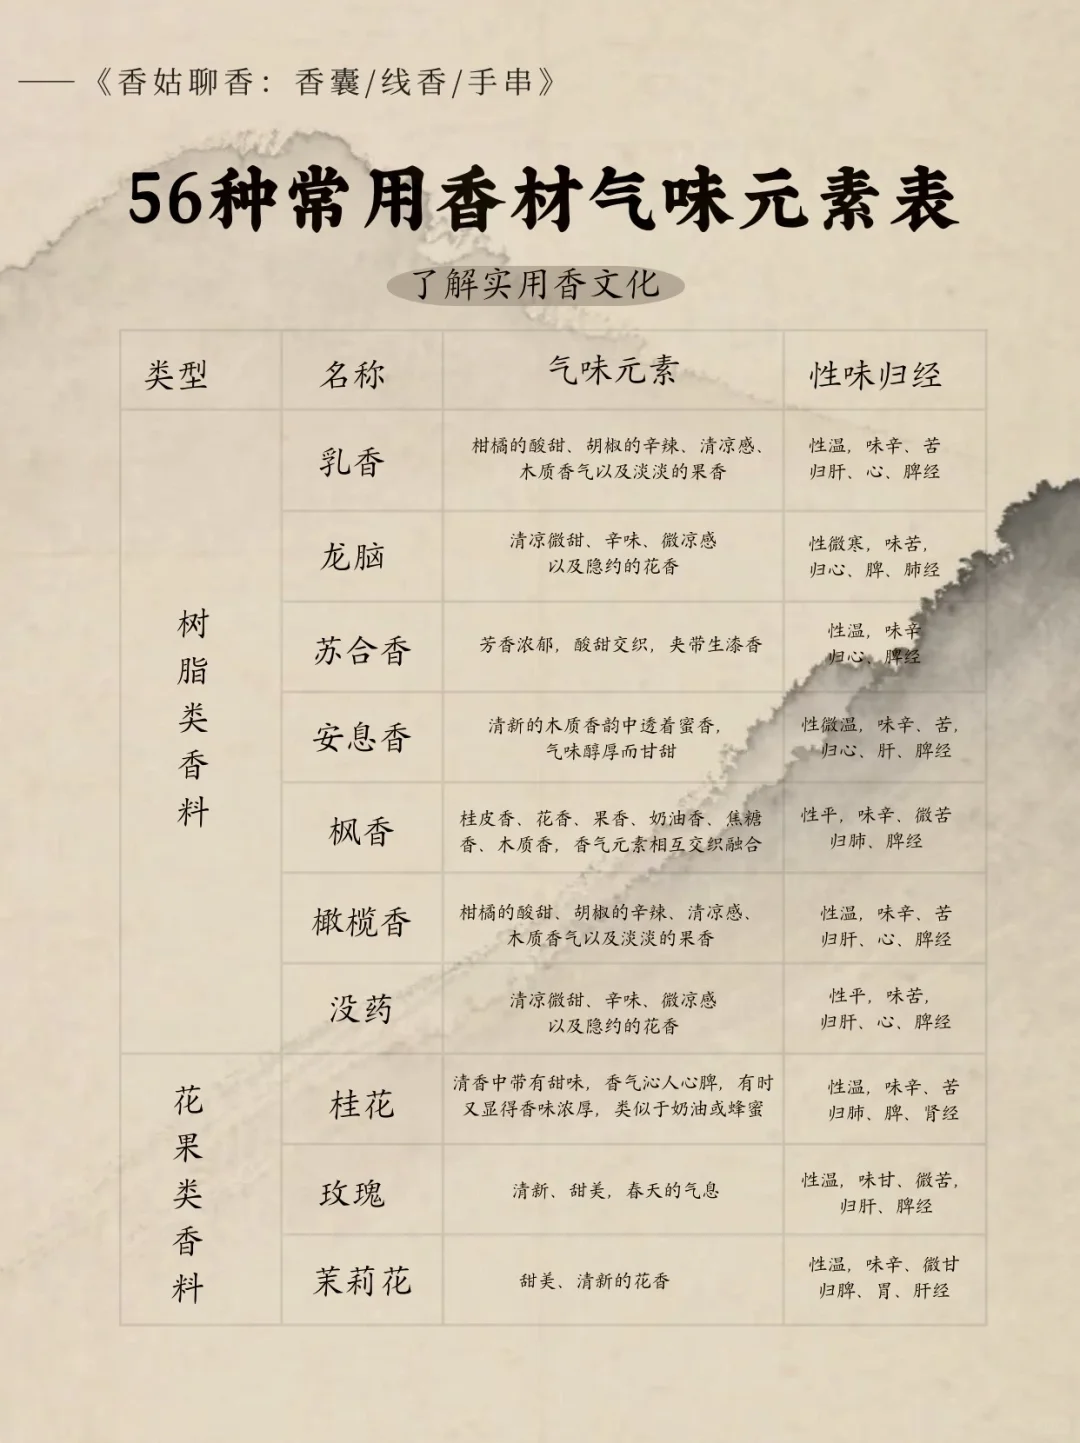 ——《香姑聊香：香囊/线香/手串》
56种常用香材气味元素表
了解实用香文化
类型 名称 气味元素 性味归经
树脂类香料
乳香
柑橘的酸甜、胡椒的辛辣、清凉感、
木质香气以及淡淡的果香
性温，味辛、苦
归肝、心、脾经
龙脑
清凉微甜、辛味、微凉感
以及隐约的花香
性微寒，味苦，
归心、脾、肺经
苏合香
芳香浓郁，酸甜交织，夹带生漆香
性温，味辛
归心、脾经
安息香
清新的木质香韵中透着蜜香，
气味醇厚而甘甜
性微温，味辛、苦，
归心、肝、脾经
枫香
桂皮香、花香、果香、奶油香、焦糖
香、木质香，香气元素相互交织融合
性平，味辛、微苦
归肺、脾经
橄榄香
柑橘的酸甜、胡椒的辛辣、清凉感、
木质香气以及淡淡的果香
性温，味辛、苦
归肝、心、脾经
没药
清凉微甜、辛味、微凉感
以及隐约的花香
性平，味苦，
归肝、心、脾经
花果类香料
桂花
清香中带有甜味，香气沁人心脾，有时
又显得香味浓厚，类似于奶油或蜂蜜
性温，味辛、苦
归肺、脾、肾经
玫瑰
清新、甜美，春天的气息
性温，味甘、微苦，
归肝、脾经
茉莉花
甜美、清新的花香
性温，味辛、微甘
归脾、胃、肝经